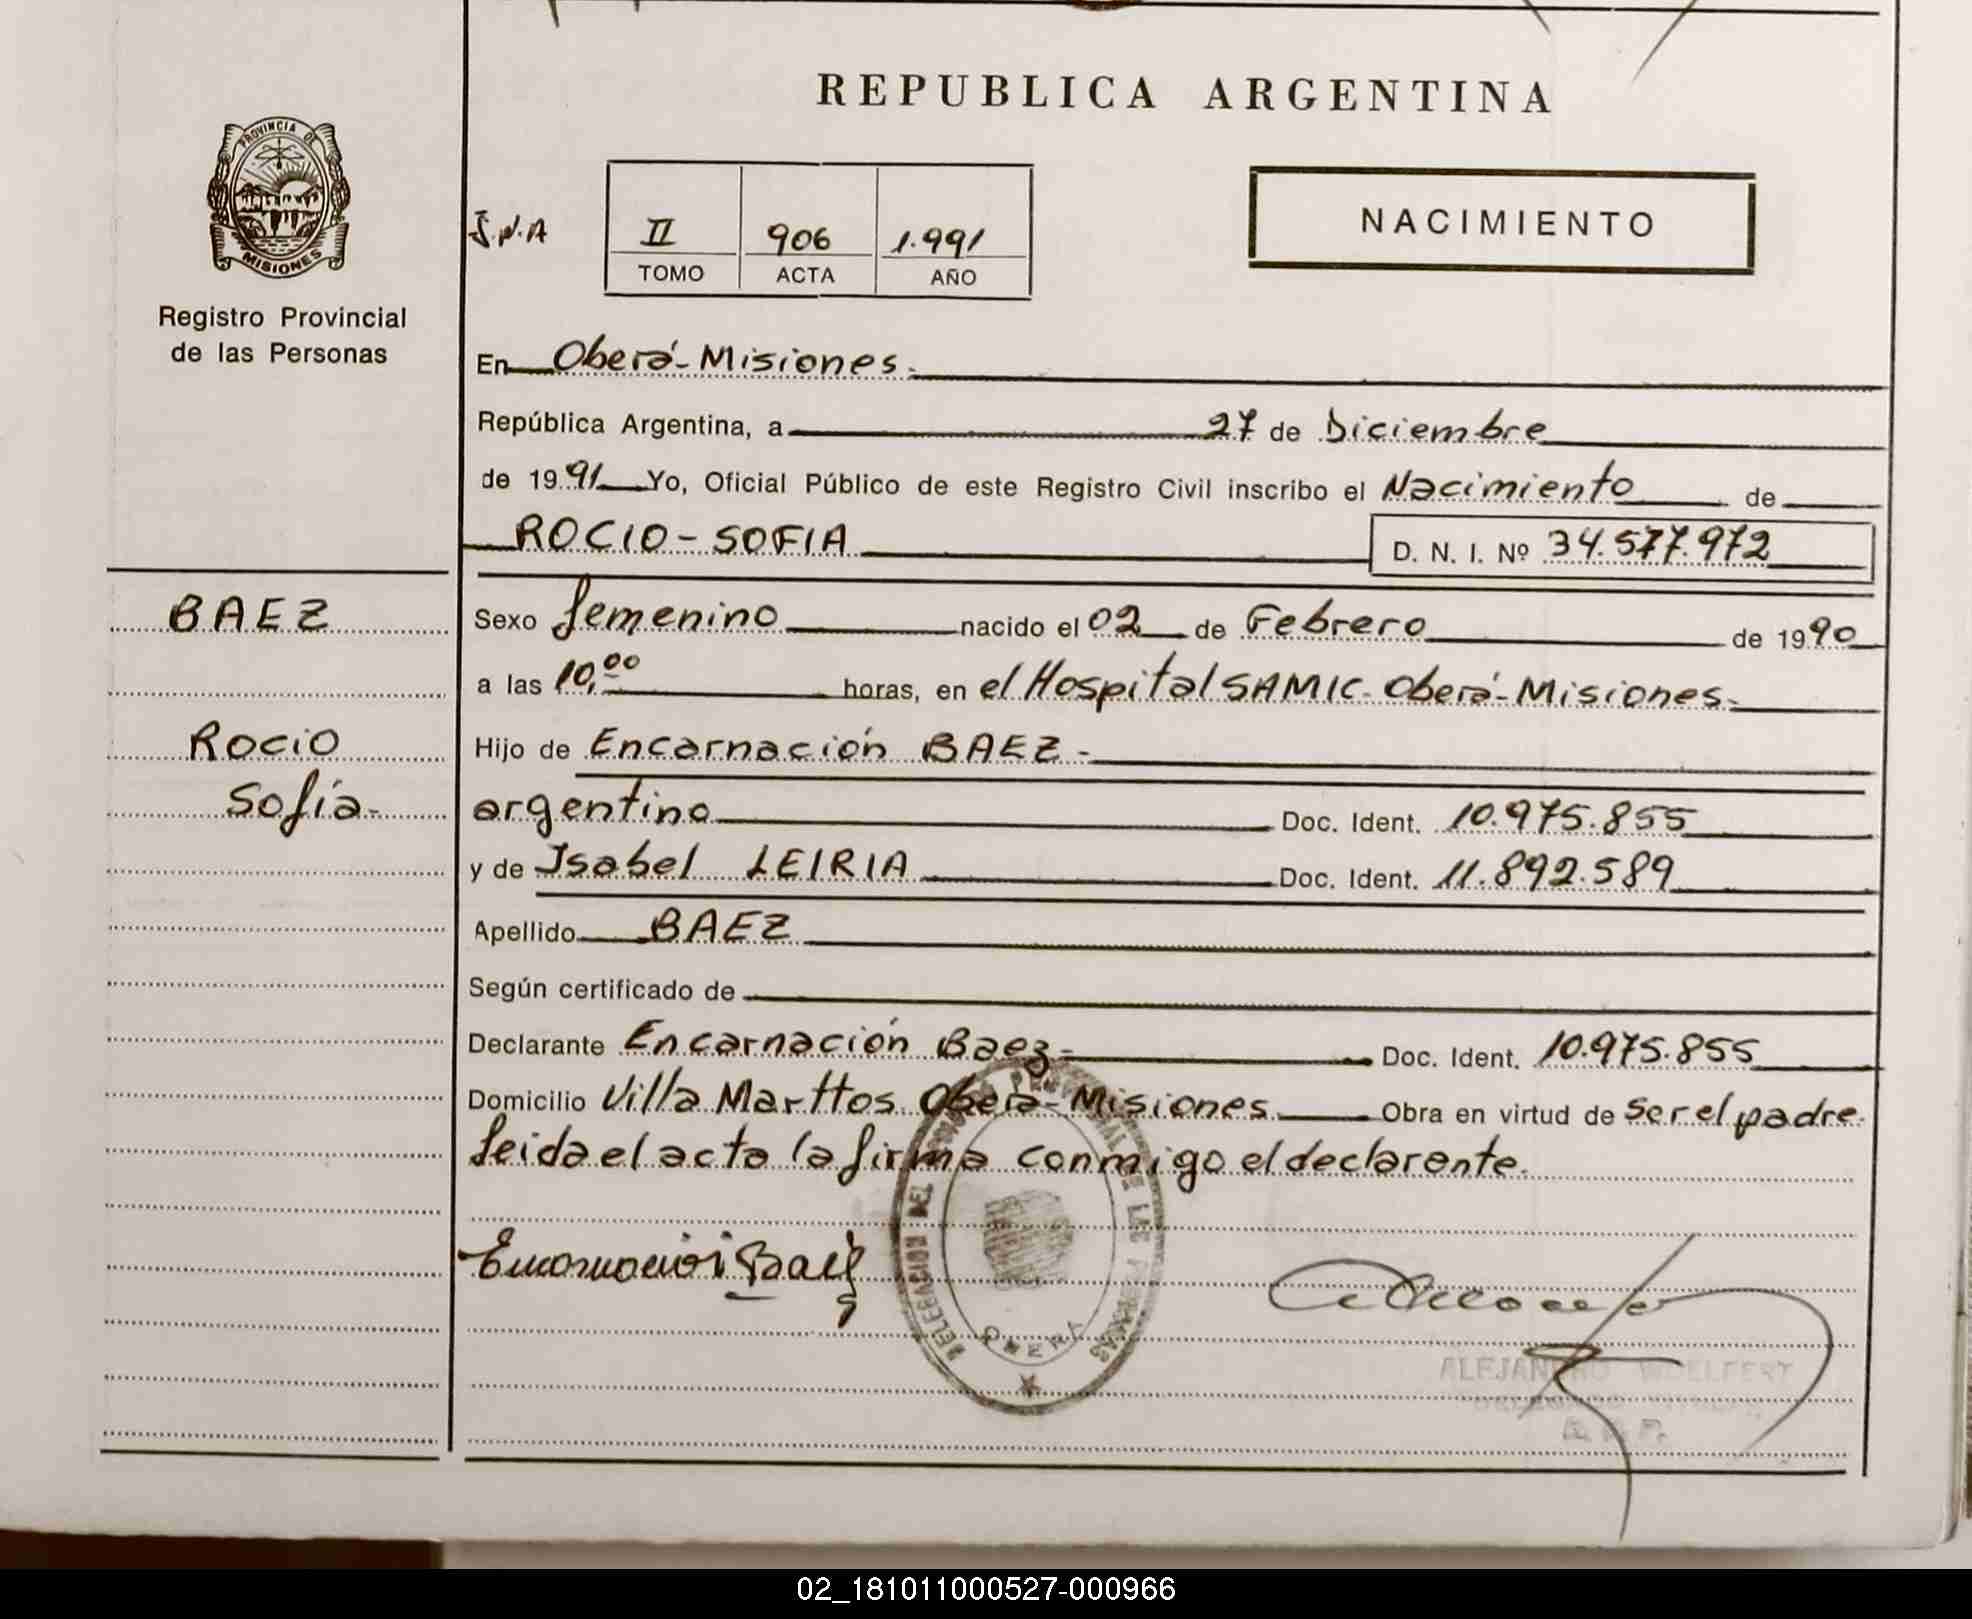 REPUBLICA ARGENTINA
PROVINCIA DE
MISIONES
Registro Provincial
de las Personas
I.N.A
II 906 1.991
TOMO ACTA AÑO
NACIMIENTO
En Oberá-Misiones.
República Argentina, a 27 de Diciembre
de 1991 Yo, Oficial Público de este Registro Civil inscribo el Nacimiento de
ROCIO-SOFIA D. N. I. Nº 34.577.972
BAEZ
Rocio
Sofía-
Sexo femenino nacido el 02 de Febrero de 1990
a las 10,00 horas, en el Hospital SAMIC. Oberá-Misiones.
Hijo de Encarnación BAEZ-
argentino Doc. Ident. 10.975.855
y de Isabel LEIRIA Doc. Ident. 11.892.589
Apellido BAEZ
Según certificado de
Declarante Encarnación Baez- Doc. Ident. 10.975.855
Domicilio Villa Marttos Oberá-Misiones Obra en virtud de ser el padre.
Leida el acta la firma conmigo el declarante.
Encarnación Baez
DELEGACION DEL REGISTRO PROVINCIAL DE LAS PERSONAS
OBERA
ALEJANDRO WOELFERT
02_181011000527-000966